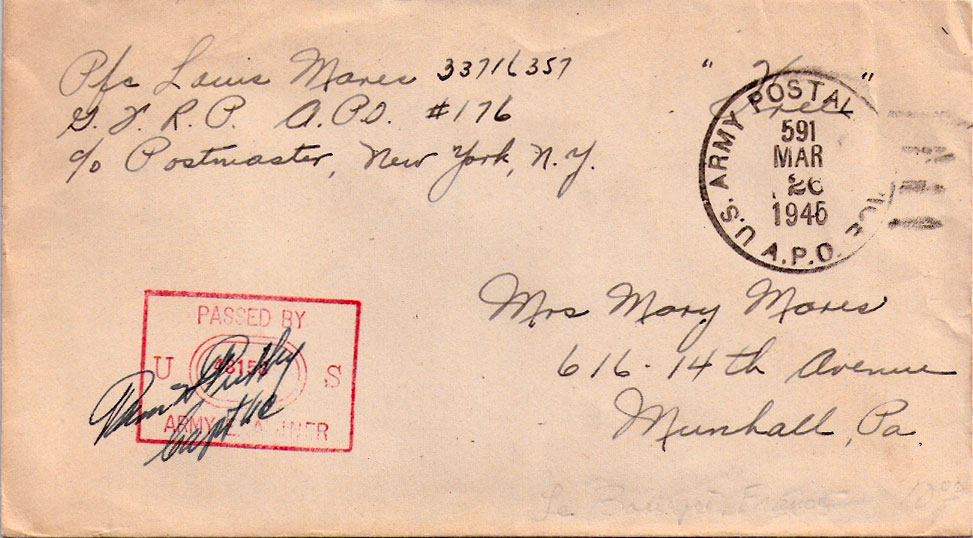 Pfc Louis Mares 33716357
G.F.R.P. A.P.O. #176
c/o Postmaster, New York, N.Y.
"Free"
U.S. ARMY POSTAL
A.P.O.
591
MAR
26
1945
PASSED BY
U S
ARMY EXAMINER
Capt
Mrs Mary Mares
616-14th Avenue
Munhall, Pa.
Le Bourget, France